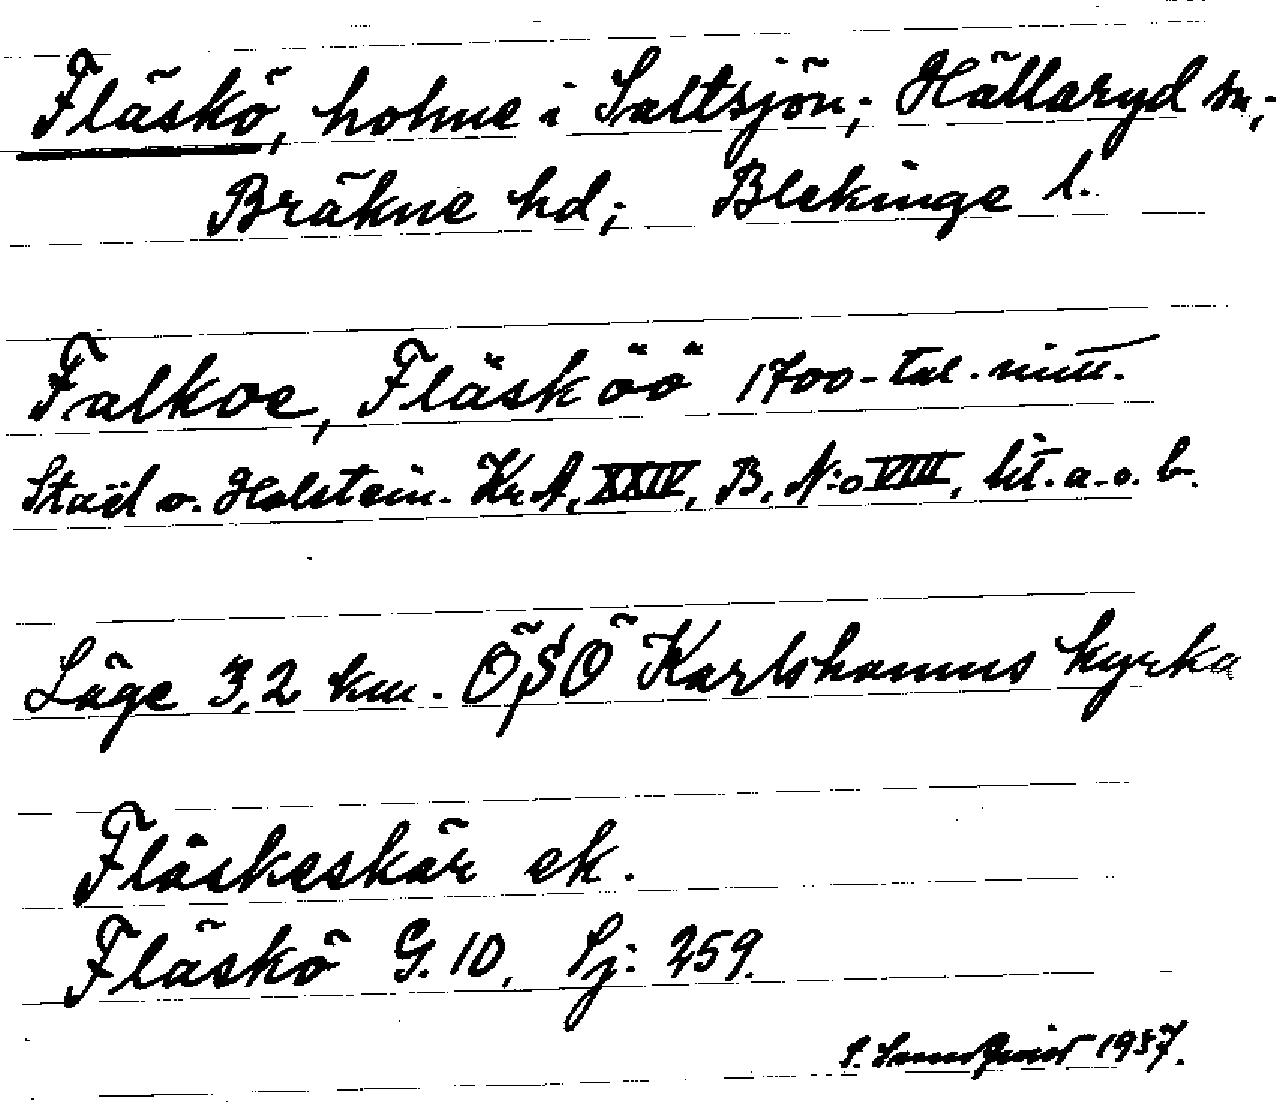 Fläskö, holme i Saltsjön; Hällaryd sn,;
Bräkne hd; Blekinge l.
Falkoe, Fläsköö 1700-tal. mitt.
Staël v. Holstein. Kr.A. XXIV, B. N:o VIII, lit. a. o. b.
Läge 3,2 km. ÖSÖ Karlshamns kyrka
Fläskeskär ek.
Fläskö G. 10, Sj: 259.
S. 1937.